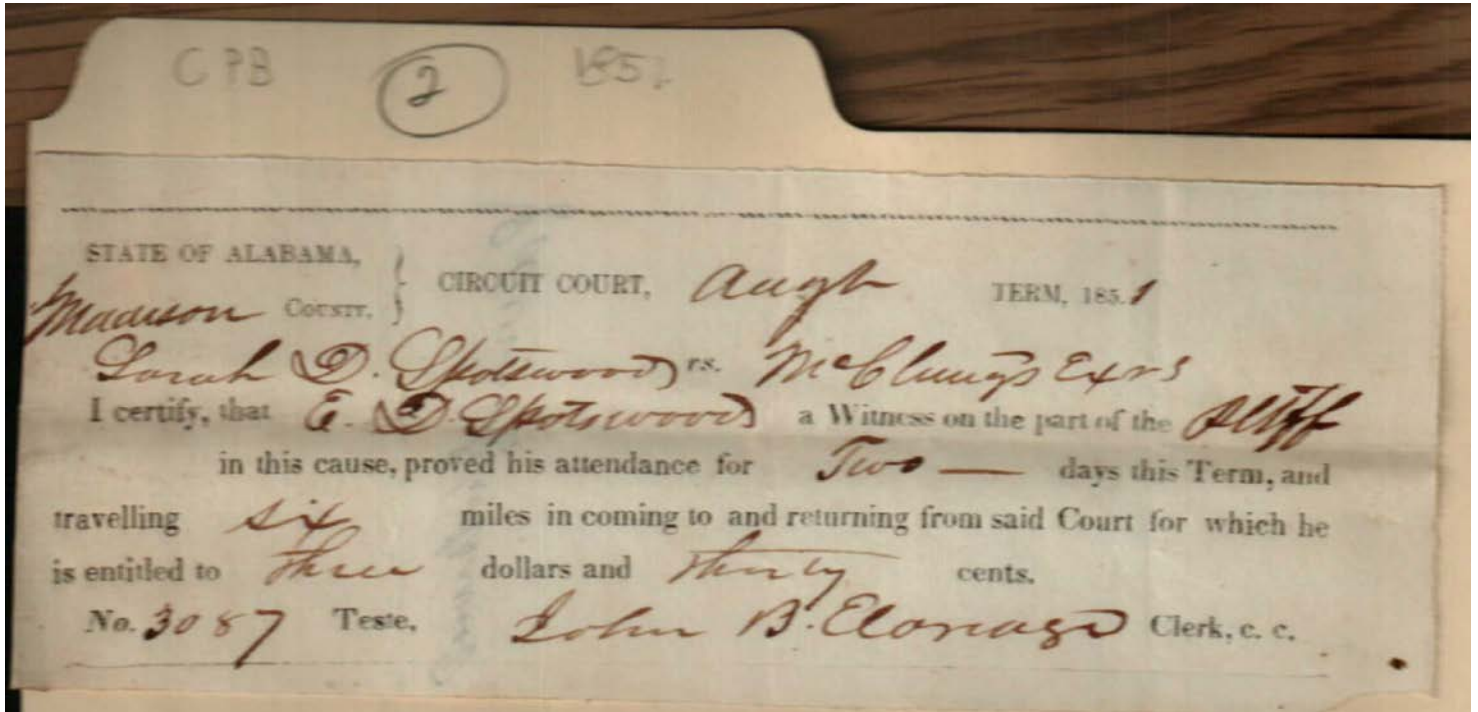 CPB 2 185
STATE OF ALABAMA,
Madison COUNTY. } CIRCUIT COURT, TERM, 1851
Sarah D. Spotswood vs. McClung's Exrs
I certify, that E. D. Spotswood a Witness on the part of the Pltff
in this cause, proved his attendance for Two — days this Term, and
travelling six miles in coming to and returning from said Court for which he
is entitled to three dollars and thirty cents.
No. 3087 Teste, John B. Clerk, c. c.